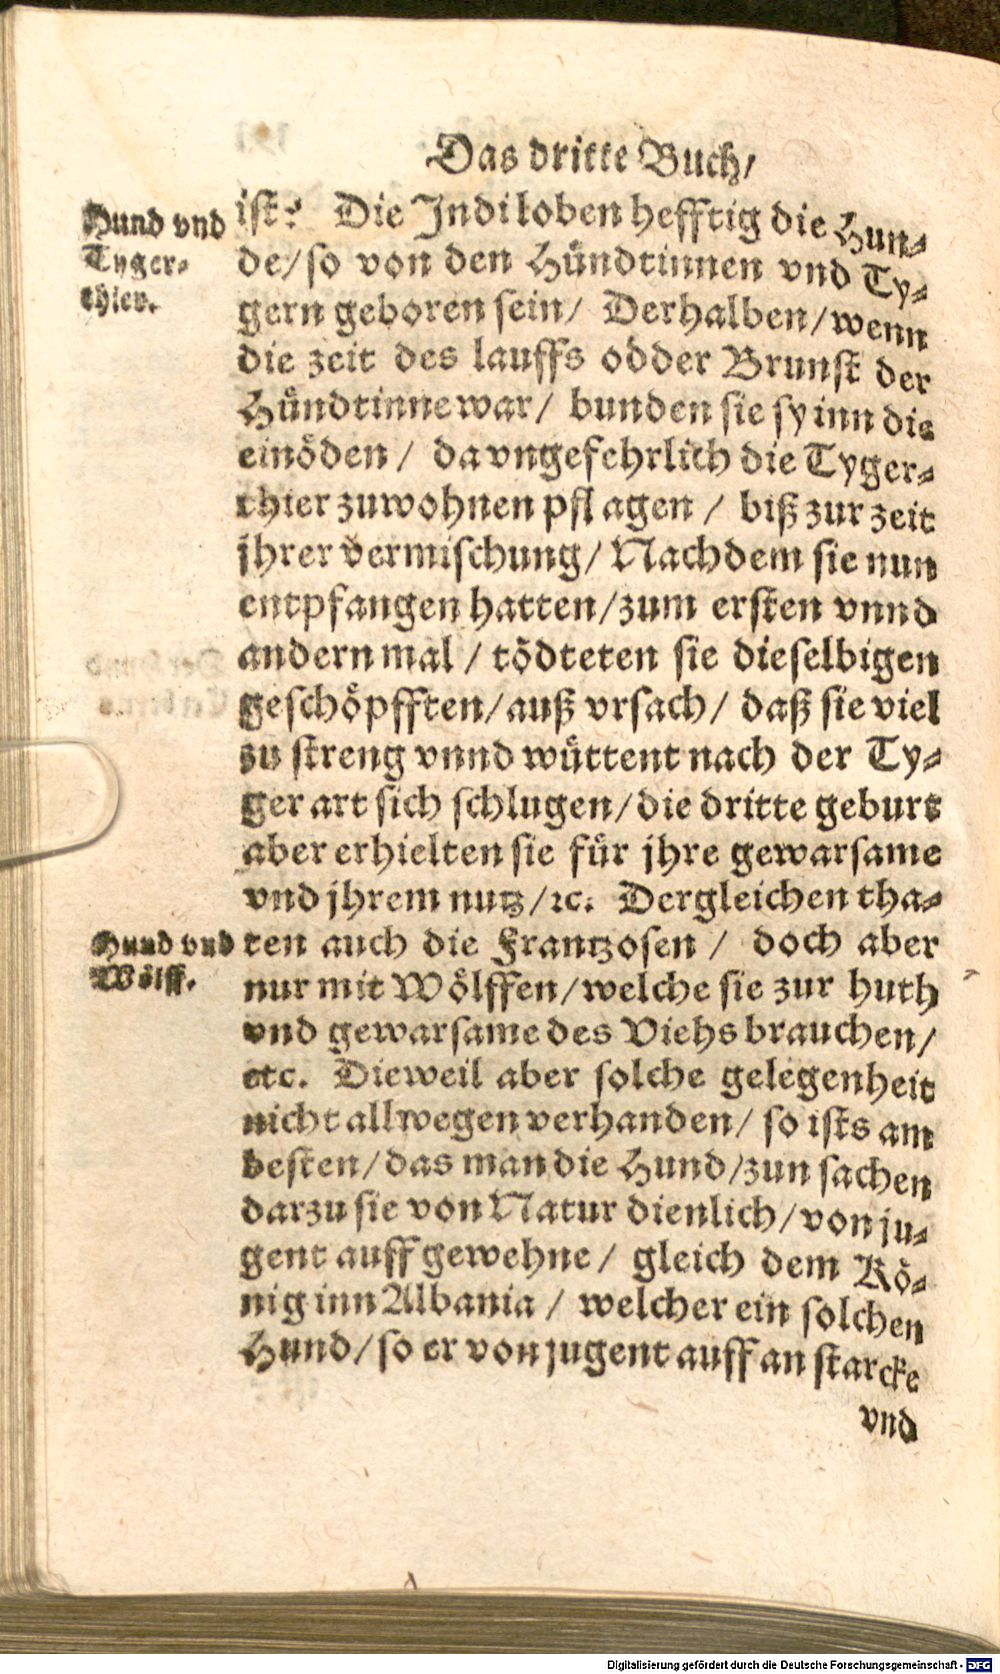 Das dritte Buch/
Hund vnd
Tyger-
thier.
ist? Die Indi loben hefftig die Hun-
de/so von den Hündtinnen vnd Ty-
gern geboren sein/ Derhalben/wenn
die zeit des lauffs odder Brunst der
Hündtinne war/ bunden sie sy inn die
einöden/ da vngefehrlich die Tyger-
thier zuwohnen pflagen/ biß zur zeit
jhrer vermischung/ Nachdem sie nun
entpfangen hatten/zum ersten vnnd
andern mal/ tödteten sie dieselbigen
geschöpfften/auß vrsach/ daß sie viel
zu streng vnnd wüttent nach der Ty-
ger art sich schlugen/die dritte geburt
aber erhielten sie für jhre gewarsame
vnd jhrem nutz/ꝛc. Dergleichen tha-
Hund vnd
Wölff.
ten auch die Frantzosen/ doch aber
nur mit Wölffen/welche sie zur huth
vnd gewarsame des Viehs brauchen/
etc. Dieweil aber solche gelegenheit
nicht allwegen verhanden/ so ists am
besten/das man die Hund/zun sachen
darzu sie von Natur dienlich/von ju-
gent auff gewehne/ gleich dem Kö-
nig inn Albania/ welcher ein solchen
Hund/so er von jugent auff an starcke
vnd
Digitalisierung gefördert durch die Deutsche Forschungsgemeinschaft - DFG